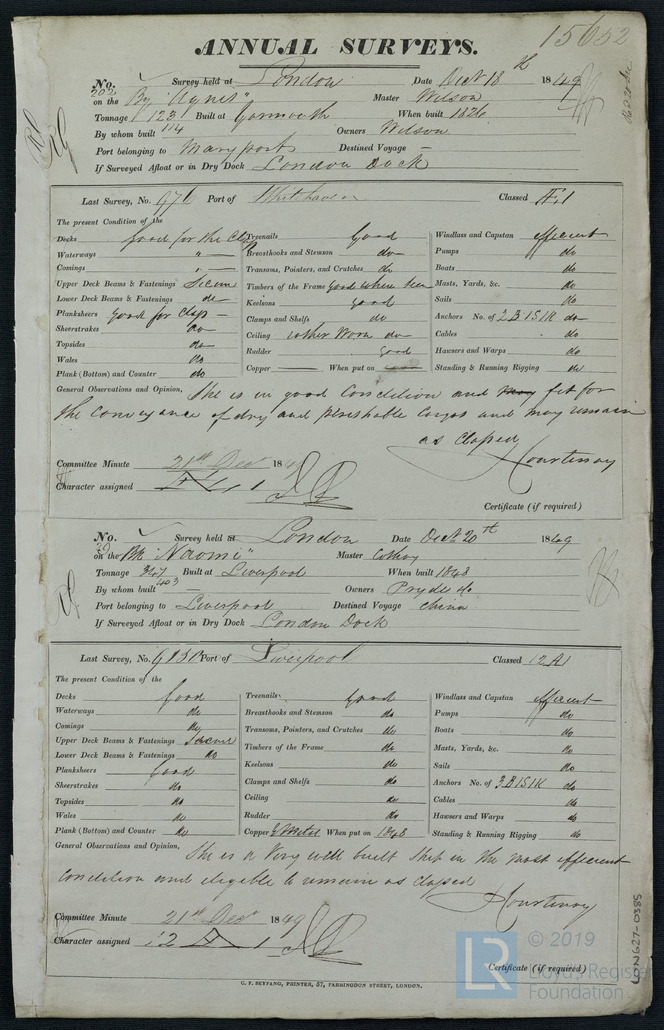 15652
ANNUAL SURVEYS.
No. 202 Survey held at London Date Dec 18th 1849
on the Bg "Agnes" Master Wilson
Tonnage 123 114 Built at Yarmouth When built 1826
By whom built Owners Wilson
Port belonging to Maryport Destined Voyage —
If Surveyed Afloat or in Dry Dock London Dock
Last Survey, No. 976 Port of Whitehaven Classed Æ1
The present Condition of the
Decks good for the Class Treenails Good Windlass and Capstan efficient
Waterways " Breasthooks and Stemson do Pumps do
Comings " Transoms, Pointers, and Crutches do Boats do
Upper Deck Beams & Fastenings Secure Timbers of the Frame good where seen Masts, Yards, &c. do
Lower Deck Beams & Fastenings do Keelsons good Sails do
Planksheers good for Class Clamps and Shelfs do Anchors No. of 2B 1S 1K do
Sheerstrakes do Ceiling rather Worn do Cables do
Topsides do Rudder Good Hawsers and Warps do
Wales do Copper — When put on — Standing & Running Rigging do
Plank (Bottom) and Counter do
General Observations and Opinion, She is in good Condition and may fit for
the conveyance of dry and perishable Cargos and may remain
as Classed
Courtenay
Committee Minute 21st Decr 1849
Character assigned Æ 1
Certificate (if required)
No. Survey held at London Date Dec 20th 1849
on the Bk "Naomi" Master
Tonnage 347 403 Built at Liverpool When built 1848
By whom built — Owners Pryde &c
Port belonging to Liverpool Destined Voyage China
If Surveyed Afloat or in Dry Dock London Dock
Last Survey, No. Port of Liverpool Classed 12A1
The present Condition of the
Decks Good Treenails Good Windlass and Capstan efficient
Waterways do Breasthooks and Stemson do Pumps do
Comings do Transoms, Pointers, and Crutches do Boats do
Upper Deck Beams & Fastenings Secure Timbers of the Frame do Masts, Yards, &c. do
Lower Deck Beams & Fastenings do Keelsons do Sails do
Planksheers Good Clamps and Shelfs do Anchors No. of 3B 1S 1K do
Sheerstrakes do Ceiling do Cables do
Topsides do Rudder do Hawsers and Warps do
Wales do Copper Y Metal When put on 1848 Standing & Running Rigging do
Plank (Bottom) and Counter do
General Observations and Opinion, She is a Very well built Ship in the most efficient
Condition and eligible to remain as Classed
Courtenay
Committee Minute 21st Decr 1849
Character assigned 12 A 1
Certificate (if required)
G. F. SEYFANG, PRINTER, 57, FARRINGDON STREET, LONDON.
LR © 2019
Lloyd's Register
Foundation
L-2627-0385